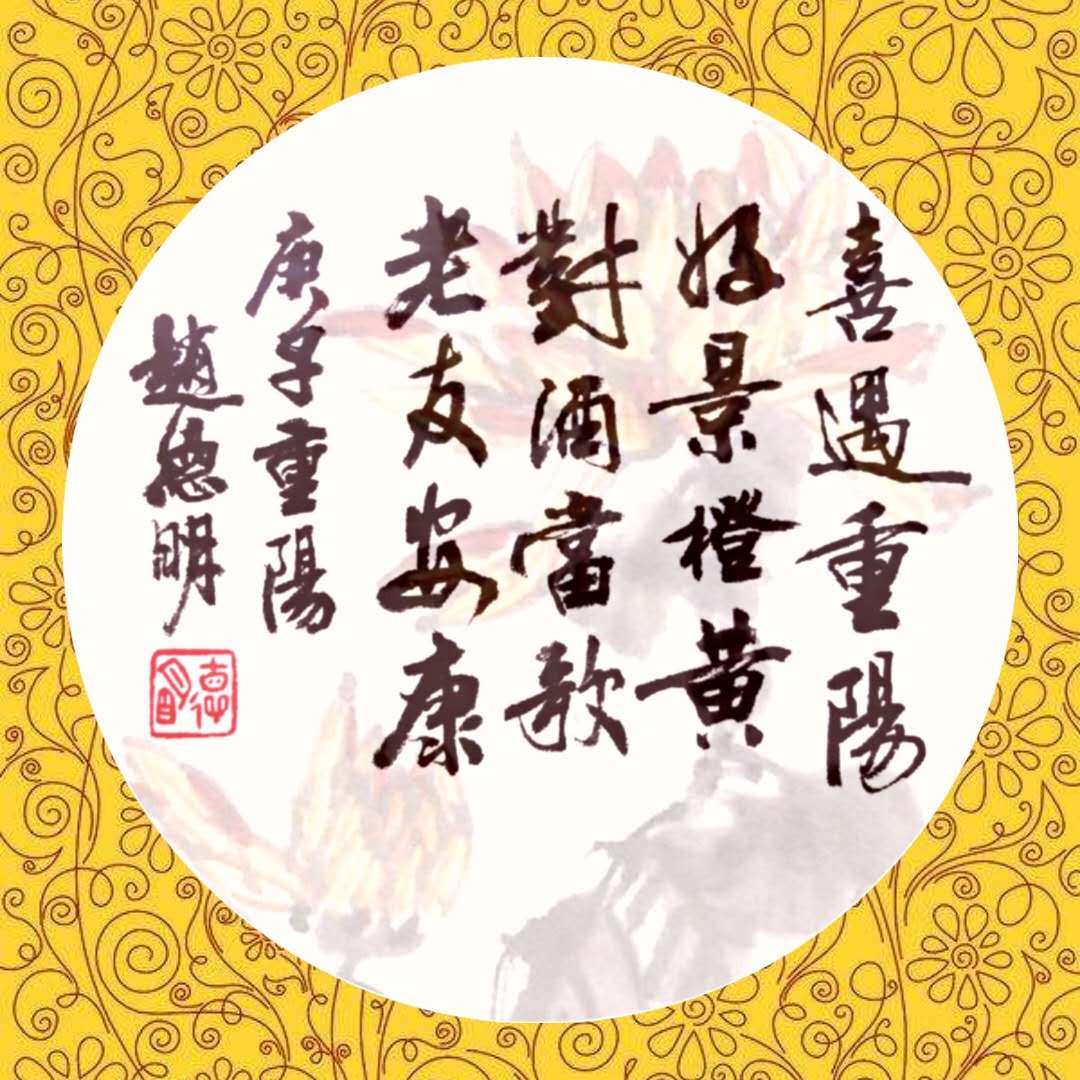 喜遇重陽
好景橙黄
對酒當歌
老友安康
庚子重陽
趙德明
德明